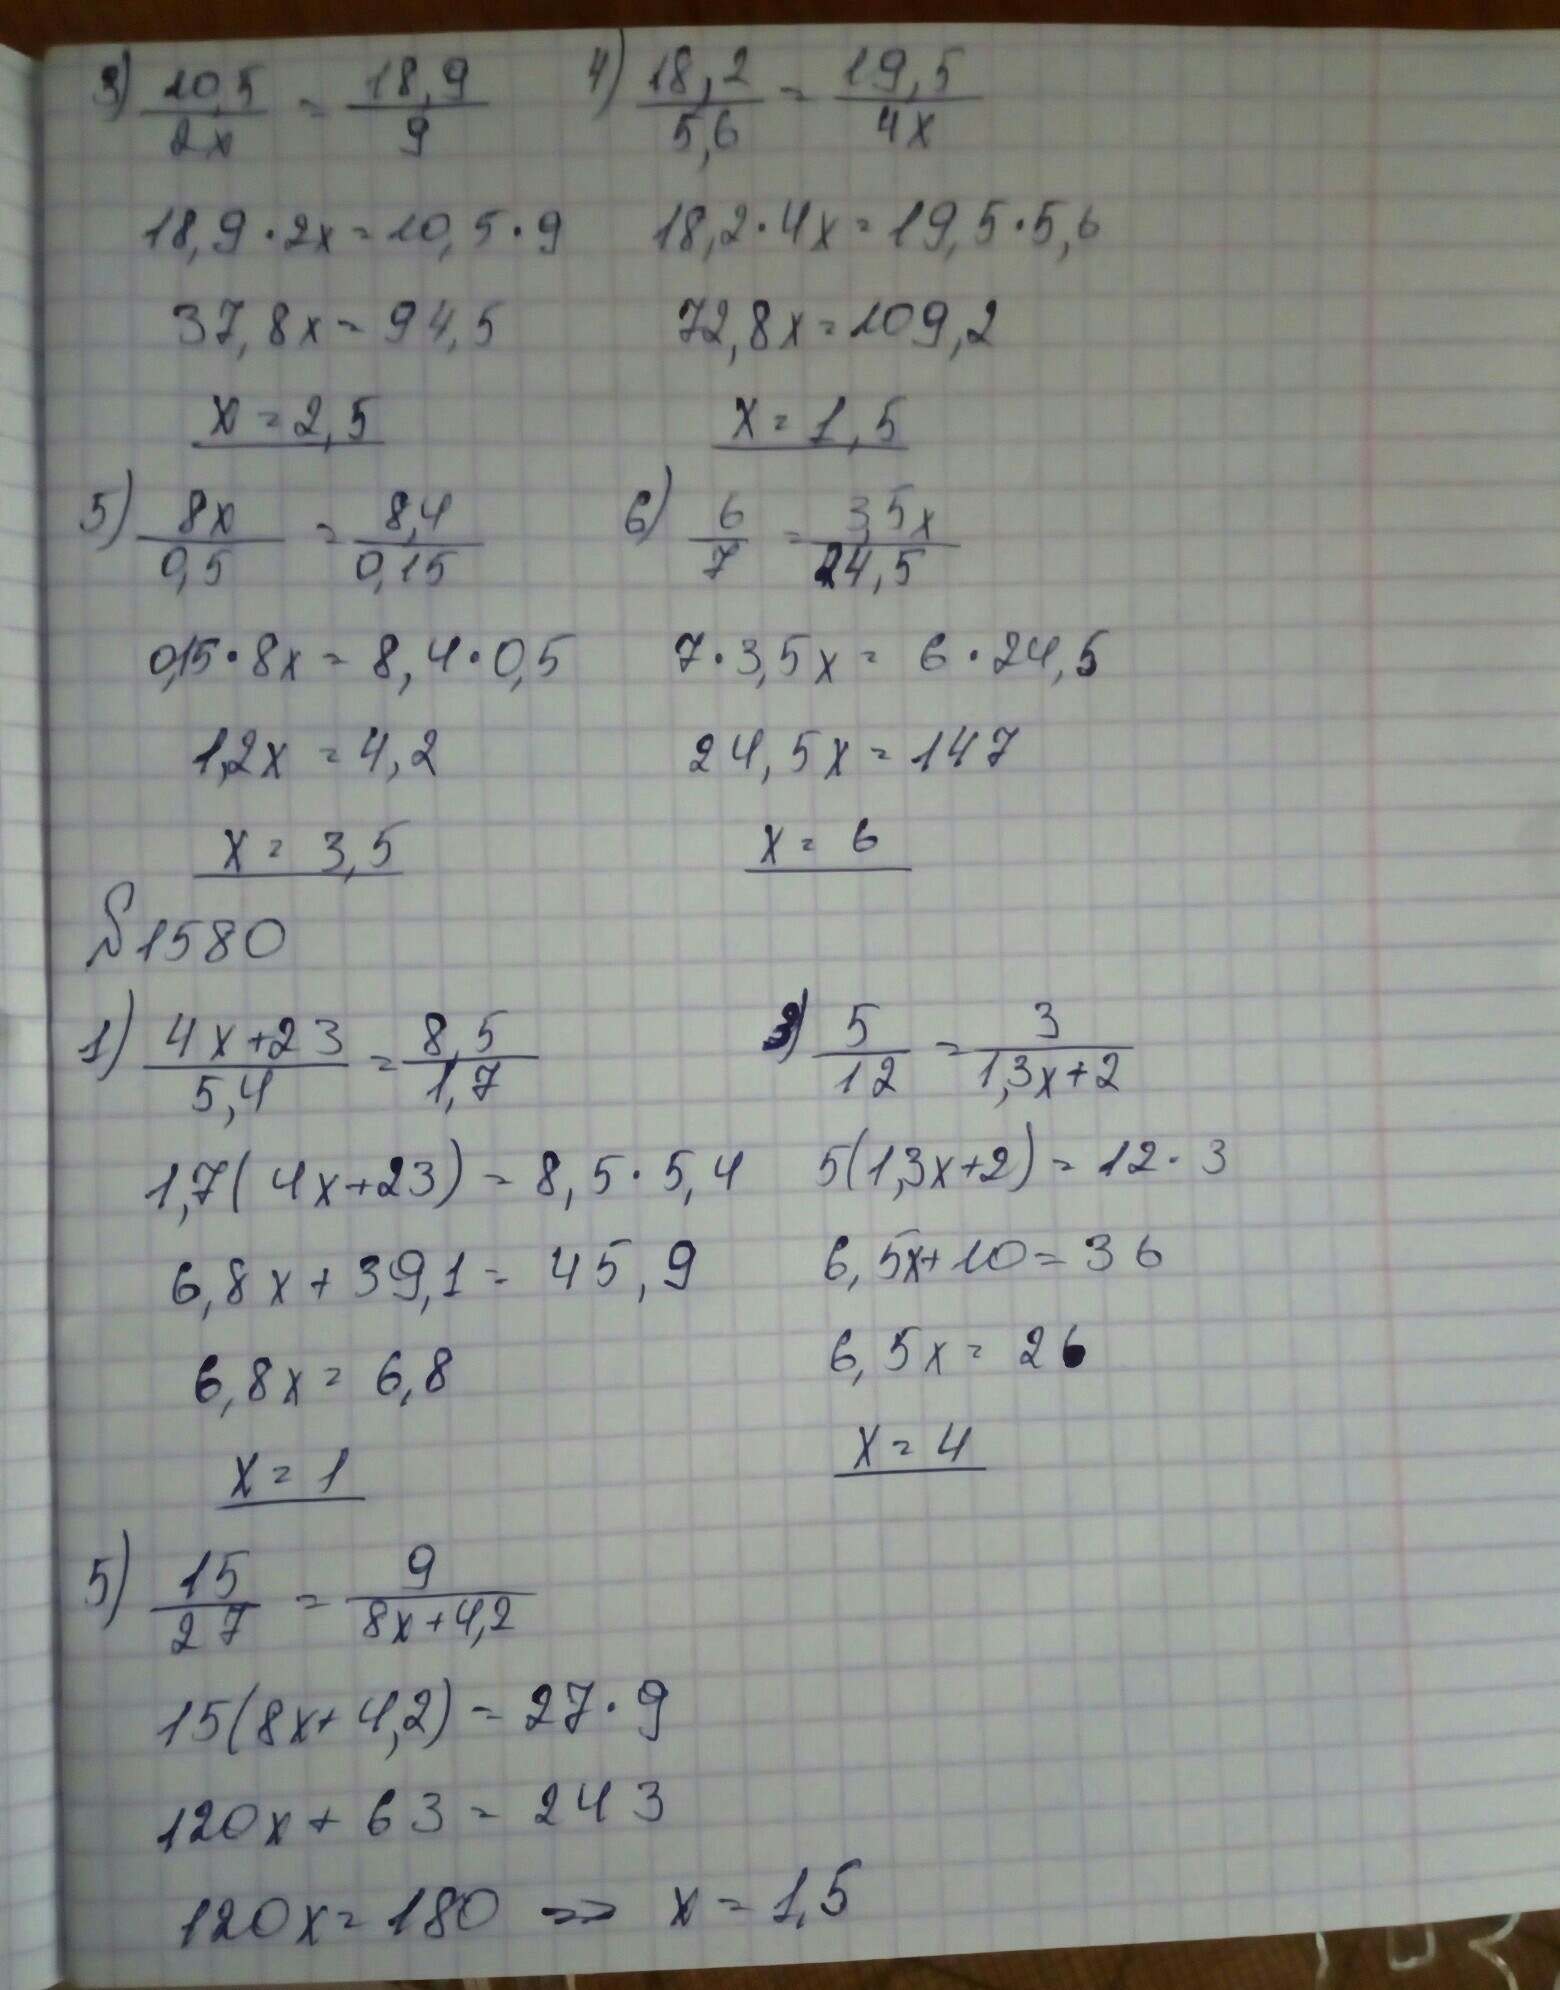 3) 10,5/2x = 18,9/9
18,9·2x=10,5·9
37,8x=94,5
x=2,5
4) 18,2/5,6 = 19,5/4x
18,2·4x=19,5·5,6
72,8x=109,2
x=1,5
5) 8x/0,5 = 8,4/0,15
0,15·8x=8,4·0,5
1,2x=4,2
x=3,5
6) 6/7 = 3,5x/24,5
7·3,5x=6·24,5
24,5x=147
x=6
№1580
1) (4x+23)/5,4 = 8,5/1,7
1,7(4x+23)=8,5·5,4
6,8x+39,1=45,9
6,8x=6,8
x=1
3) 5/12 = 3/(1,3x+2)
5(1,3x+2)=12·3
6,5x+10=36
6,5x=26
x=4
5) 15/27 = 9/(8x+4,2)
15(8x+4,2)=27·9
120x+63=243
120x=180 => x=1,5